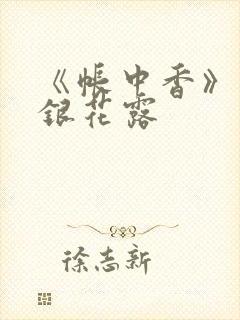 《帐中香》
银花露
徐志新